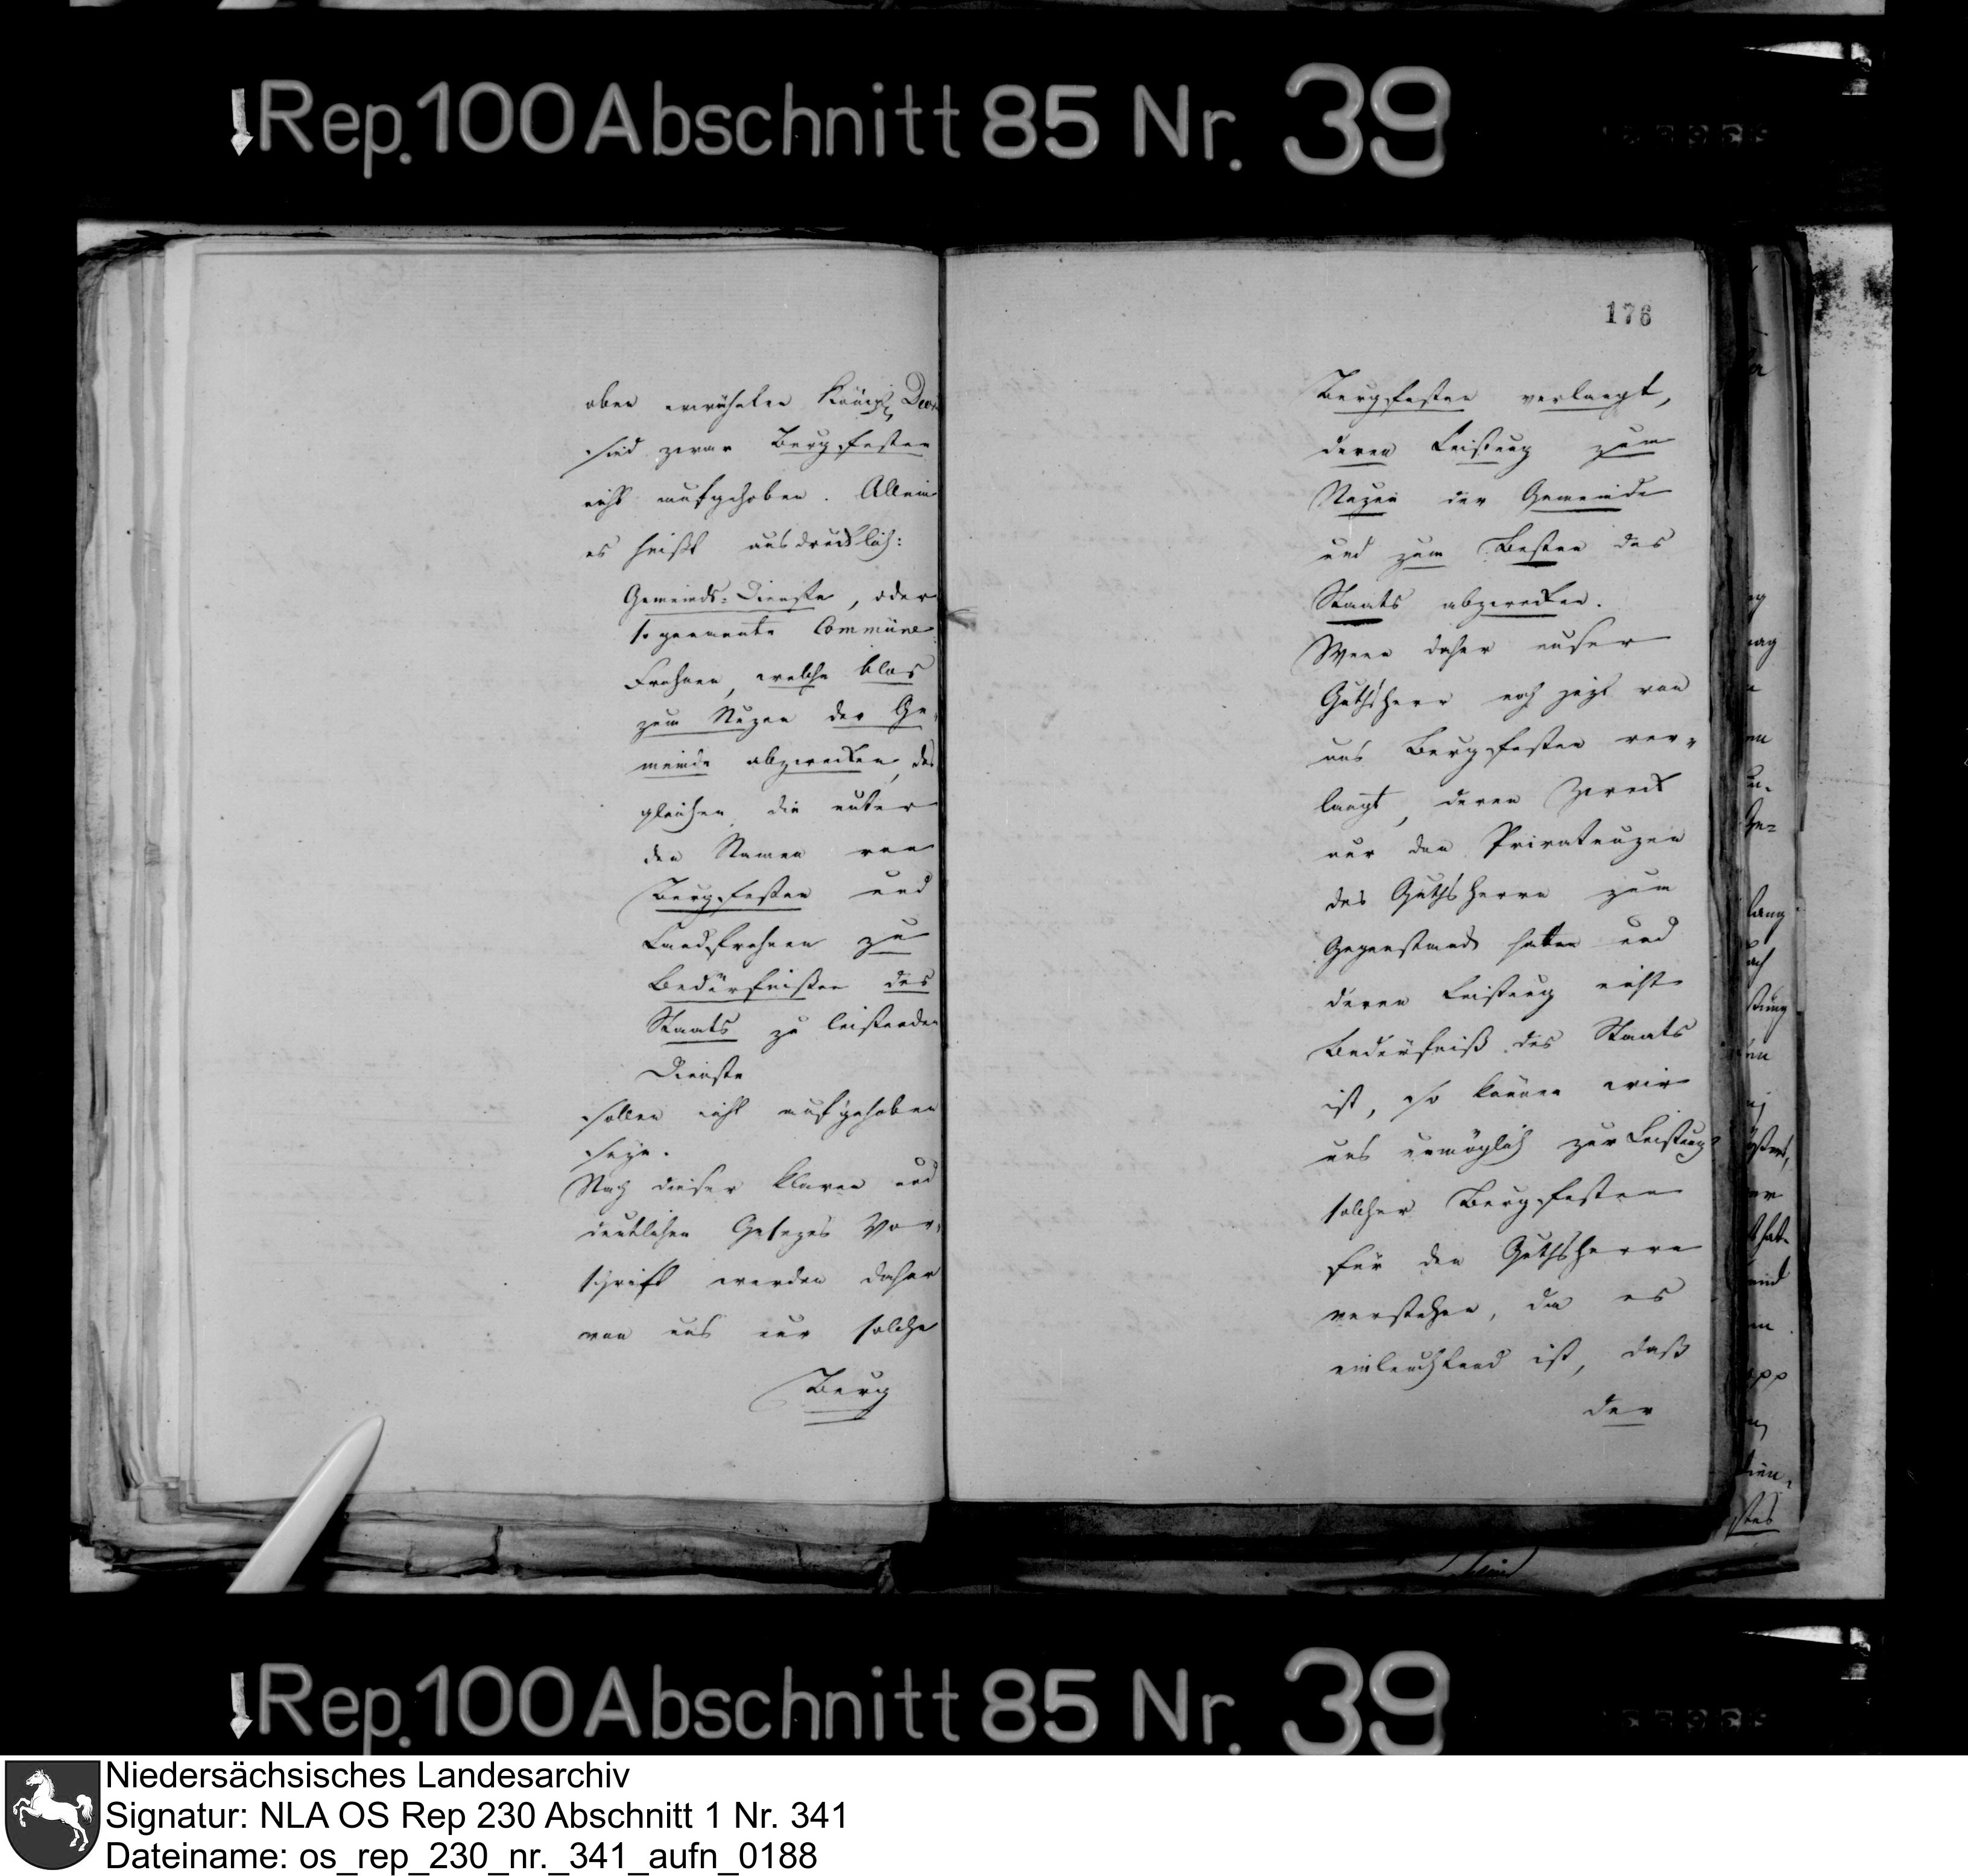 Rep. 100 Abschnitt 85 Nr. 39
oben erwähnten Königl Decr
sind zwar Bergfesten
nicht aufgehoben. Allein
es heißt ausdrücklich:
Gemeinds-Dienste, oder
sogenannte Commüne
Frohnen, welche blos
zum Nuzen der Ge-
meinde abzwecken, des
gleichen die unter
den Namen von
Burgfesten und
Landfrohnen zu
Bedürfnißen des
Staats zu leistenden
Dienste
sollen nicht aufgehoben
seyn.
Nach dieser klaren und
deutlichen Gesezes Vor-
schrift werden daher
von uns nur solche
Burg
176
Burgfesten verlangt,
deren Leistung zum
Nuzen der Gemeinde
und zum Besten des
Staats abzwecken.
Wenn daher unser
Guthsherr noch jezt von
uns Burgfesten ver-
langt, deren Zweck
nur den Privatnuzen
des Guthsherrn zum
Gegenstand haben und
deren Leistung nicht
Bedürfniß des Staats
ist, so können wir
uns unmöglich zur Leistung
solcher Burgfesten
für den Guthsherrn
verstehen, da es
einleuchtend ist, daß
der
Rep. 100 Abschnitt 85 Nr. 39
Niedersächsisches Landesarchiv
Signatur: NLA OS Rep 230 Abschnitt 1 Nr. 341
Dateiname: os_rep_230_nr._341_aufn_0188